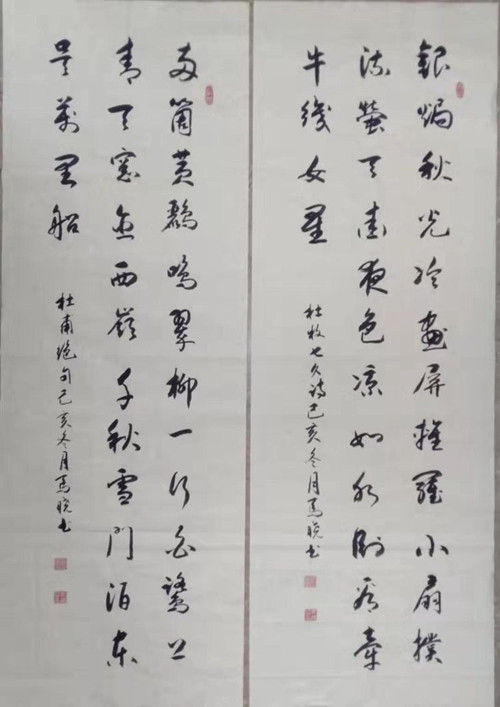 銀燭秋光冷畫屏輕羅小扇撲
流螢天街夜色凉如水卧看牽
牛織女星
杜牧七夕詩己亥冬月馬曉书
两箇黄鸝鳴翠柳一行白鷺上
青天窓含西嶺千秋雪門泊東
吴萬里船
杜甫绝句己亥冬月馬曉书